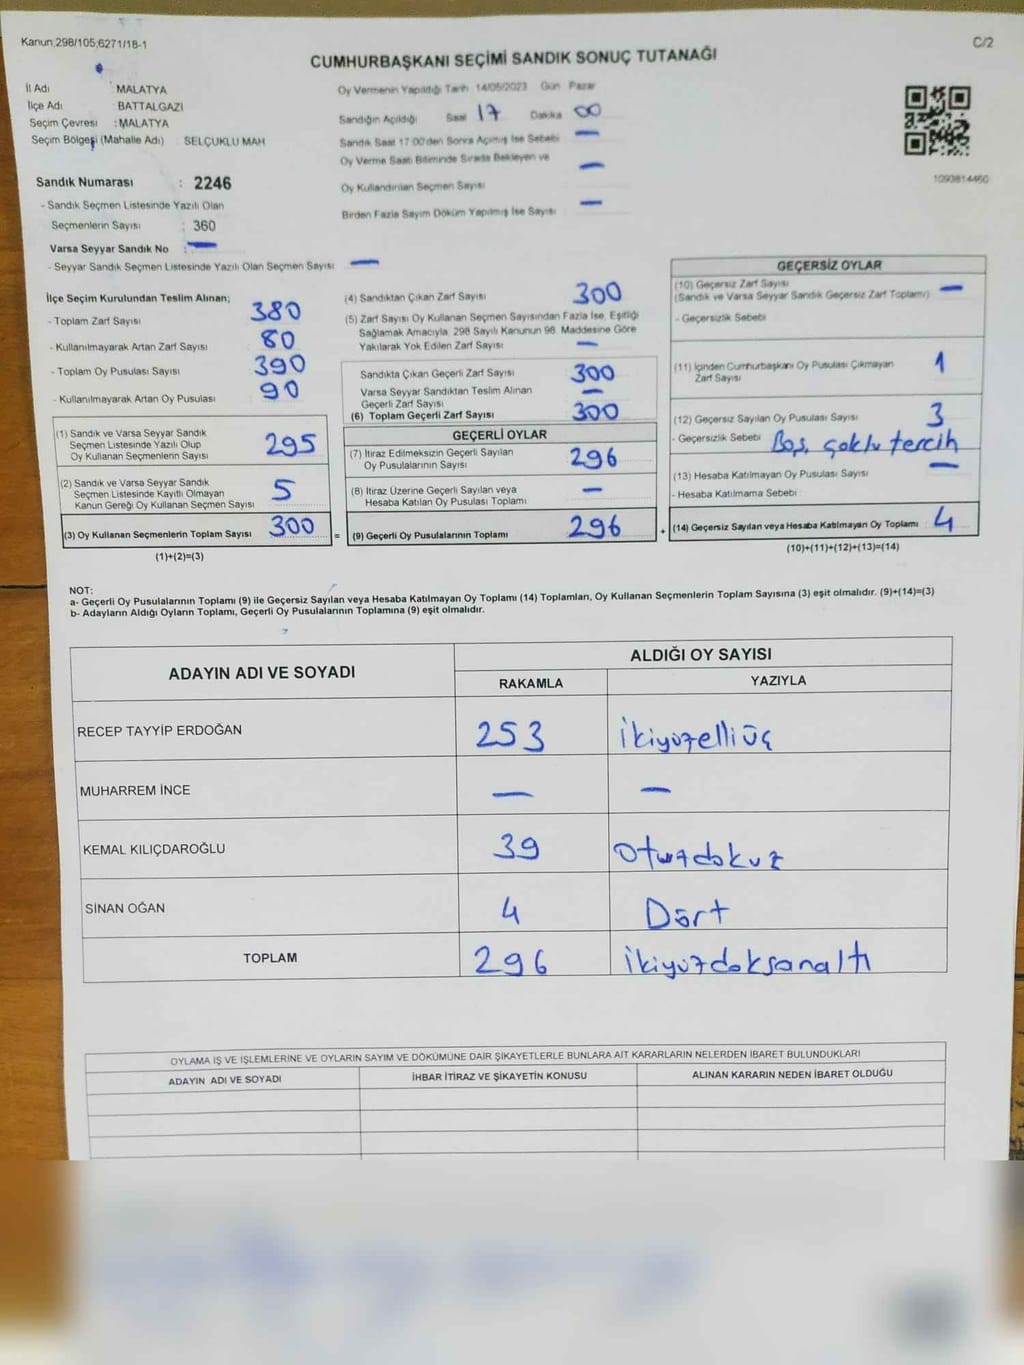 Kanun.298/105,6271/18-1
C/2
CUMHURBAŞKANI SEÇİMİ SANDIK SONUÇ TUTANAĞI
İl Adı : MALATYA
İlçe Adı : BATTALGAZİ
Seçim Çevresi : MALATYA
Seçim Bölgesi (Mahalle Adı) SELÇUKLU MAH
Oy Vermenin Yapıldığı Tarih 14/05/2023 Gün Pazar
Sandığın Açıldığı Saat 17 Dakika 00
Sandık Saat 17:00'den Sonra Açılmış İse Sebebi —
Oy Verme Saati Bitiminde Sırada Bekleyen ve
Oy Kullandırılan Seçmen Sayısı —
Birden Fazla Sayım Döküm Yapılmış İse Sayısı —
1090814460
Sandık Numarası : 2246
- Sandık Seçmen Listesinde Yazılı Olan
Seçmenlerin Sayısı : 360
Varsa Seyyar Sandık No : —
- Seyyar Sandık Seçmen Listesinde Yazılı Olan Seçmen Sayısı —
İlçe Seçim Kurulundan Teslim Alınan;
- Toplam Zarf Sayısı 380
- Kullanılmayarak Artan Zarf Sayısı 80
- Toplam Oy Pusulası Sayısı 390
- Kullanılmayarak Artan Oy Pusulası 90
(1) Sandık ve Varsa Seyyar Sandık
Seçmen Listesinde Yazılı Olup
Oy Kullanan Seçmenlerin Sayısı 295
(2) Sandık ve Varsa Seyyar Sandık
Seçmen Listesinde Kayıtlı Olmayan
Kanun Gereği Oy Kullanan Seçmen Sayısı 5
(3) Oy Kullanan Seçmenlerin Toplam Sayısı 300 =
(1)+(2)=(3)
(4) Sandıktan Çıkan Zarf Sayısı 300
(5) Zarf Sayısı Oy Kullanan Seçmen Sayısından Fazla İse, Eşitliği
Sağlamak Amacıyla, 298 Sayılı Kanunun 98. Maddesine Göre
Yakılarak Yok Edilen Zarf Sayısı —
Sandıkta Çıkan Geçerli Zarf Sayısı 300
Varsa Seyyar Sandıktan Teslim Alınan
Geçerli Zarf Sayısı —
(6) Toplam Geçerli Zarf Sayısı 300
GEÇERLİ OYLAR
(7) İtiraz Edilmeksizin Geçerli Sayılan
Oy Pusulalarının Sayısı 296
(8) İtiraz Üzerine Geçerli Sayılan veya
Hesaba Katılan Oy Pusulası Toplamı —
(9) Geçerli Oy Pusulalarının Toplamı 296 +
GEÇERSİZ OYLAR
(10) Geçersiz Zarf Sayısı
(Sandık ve Varsa Seyyar Sandık Geçersiz Zarf Toplamı) —
- Geçersizlik Sebebi
(11) İçinden Cumhurbaşkanı Oy Pusulası Çıkmayan
Zarf Sayısı 1
(12) Geçersiz Sayılan Oy Pusulası Sayısı 3
- Geçersizlik Sebebi Boş, çoklu tercih
(13) Hesaba Katılmayan Oy Pusulası Sayısı —
- Hesaba Katılmama Sebebi
(14) Geçersiz Sayılan veya Hesaba Katılmayan Oy Toplamı 4
(10)+(11)+(12)+(13)=(14)
NOT:
a- Geçerli Oy Pusulalarının Toplamı (9) ile Geçersiz Sayılan veya Hesaba Katılmayan Oy Toplamı (14) Toplamları, Oy Kullanan Seçmenlerin Toplam Sayısına (3) eşit olmalıdır. (9)+(14)=(3)
b- Adayların Aldığı Oyların Toplamı, Geçerli Oy Pusulalarının Toplamına (9) eşit olmalıdır.
ADAYIN ADI VE SOYADI
ALDIĞI OY SAYISI
RAKAMLA YAZIYLA
RECEP TAYYİP ERDOĞAN 253 İkiyüzelliüç
MUHARREM İNCE — —
KEMAL KILIÇDAROĞLU 39 Otuzdokuz
SİNAN OĞAN 4 Dört
TOPLAM 296 İkiyüzdoksanaltı
OYLAMA İŞ VE İŞLEMLERİNE VE OYLARIN SAYIM VE DÖKÜMÜNE DAİR ŞİKAYETLERLE BUNLARA AİT KARARLARIN NELERDEN İBARET BULUNDUKLARI
ADAYIN ADI VE SOYADI İHBAR İTİRAZ VE ŞİKAYETİN KONUSU ALINAN KARARIN NEDEN İBARET OLDUĞU